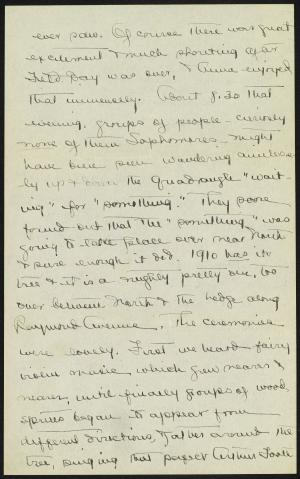 ever saw. Of course there was great
excitement & much shouting after
Field Day was over, & Anna enjoyed
that immensely. About 8.30 that
evening, groups of people - curiously
none of them Sophomores - might
have been seen wandering aimless-
ly up & down the Quadrangle "wait-
ing" for "something." They soon
found out that the "something" was
going to take place over near North
& sure enough it did. 1910 has its
tree & it is a mighty pretty one, too
over between North & the hedge along
Raymond Avenue. The ceremonies
were lovely. First we heard fairy
violin music, which grew nearer &
nearer, until finally groups of wood
sprites began to appear from
different directions, gather around the
tree, singing that perfect Arthur Foote